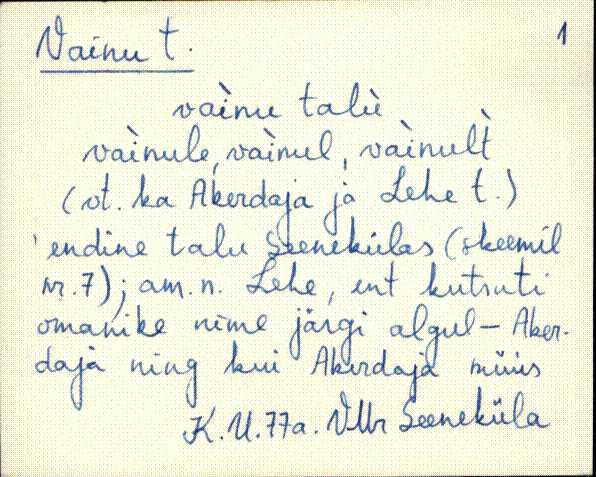 Vainu t. 1
vàinu talù
vàinule, vàinul, vàinult̀
(vt. ka Akerdaja ja Lehe t.)
'endine talu Seenekülas (skeemil
nr. 7); am. n. Lehe, ent kutsuti
omanike nime järgi algul – Aker-
daja ning kui Akerdaja müüs
K. U. 77a. VMr Seeneküla